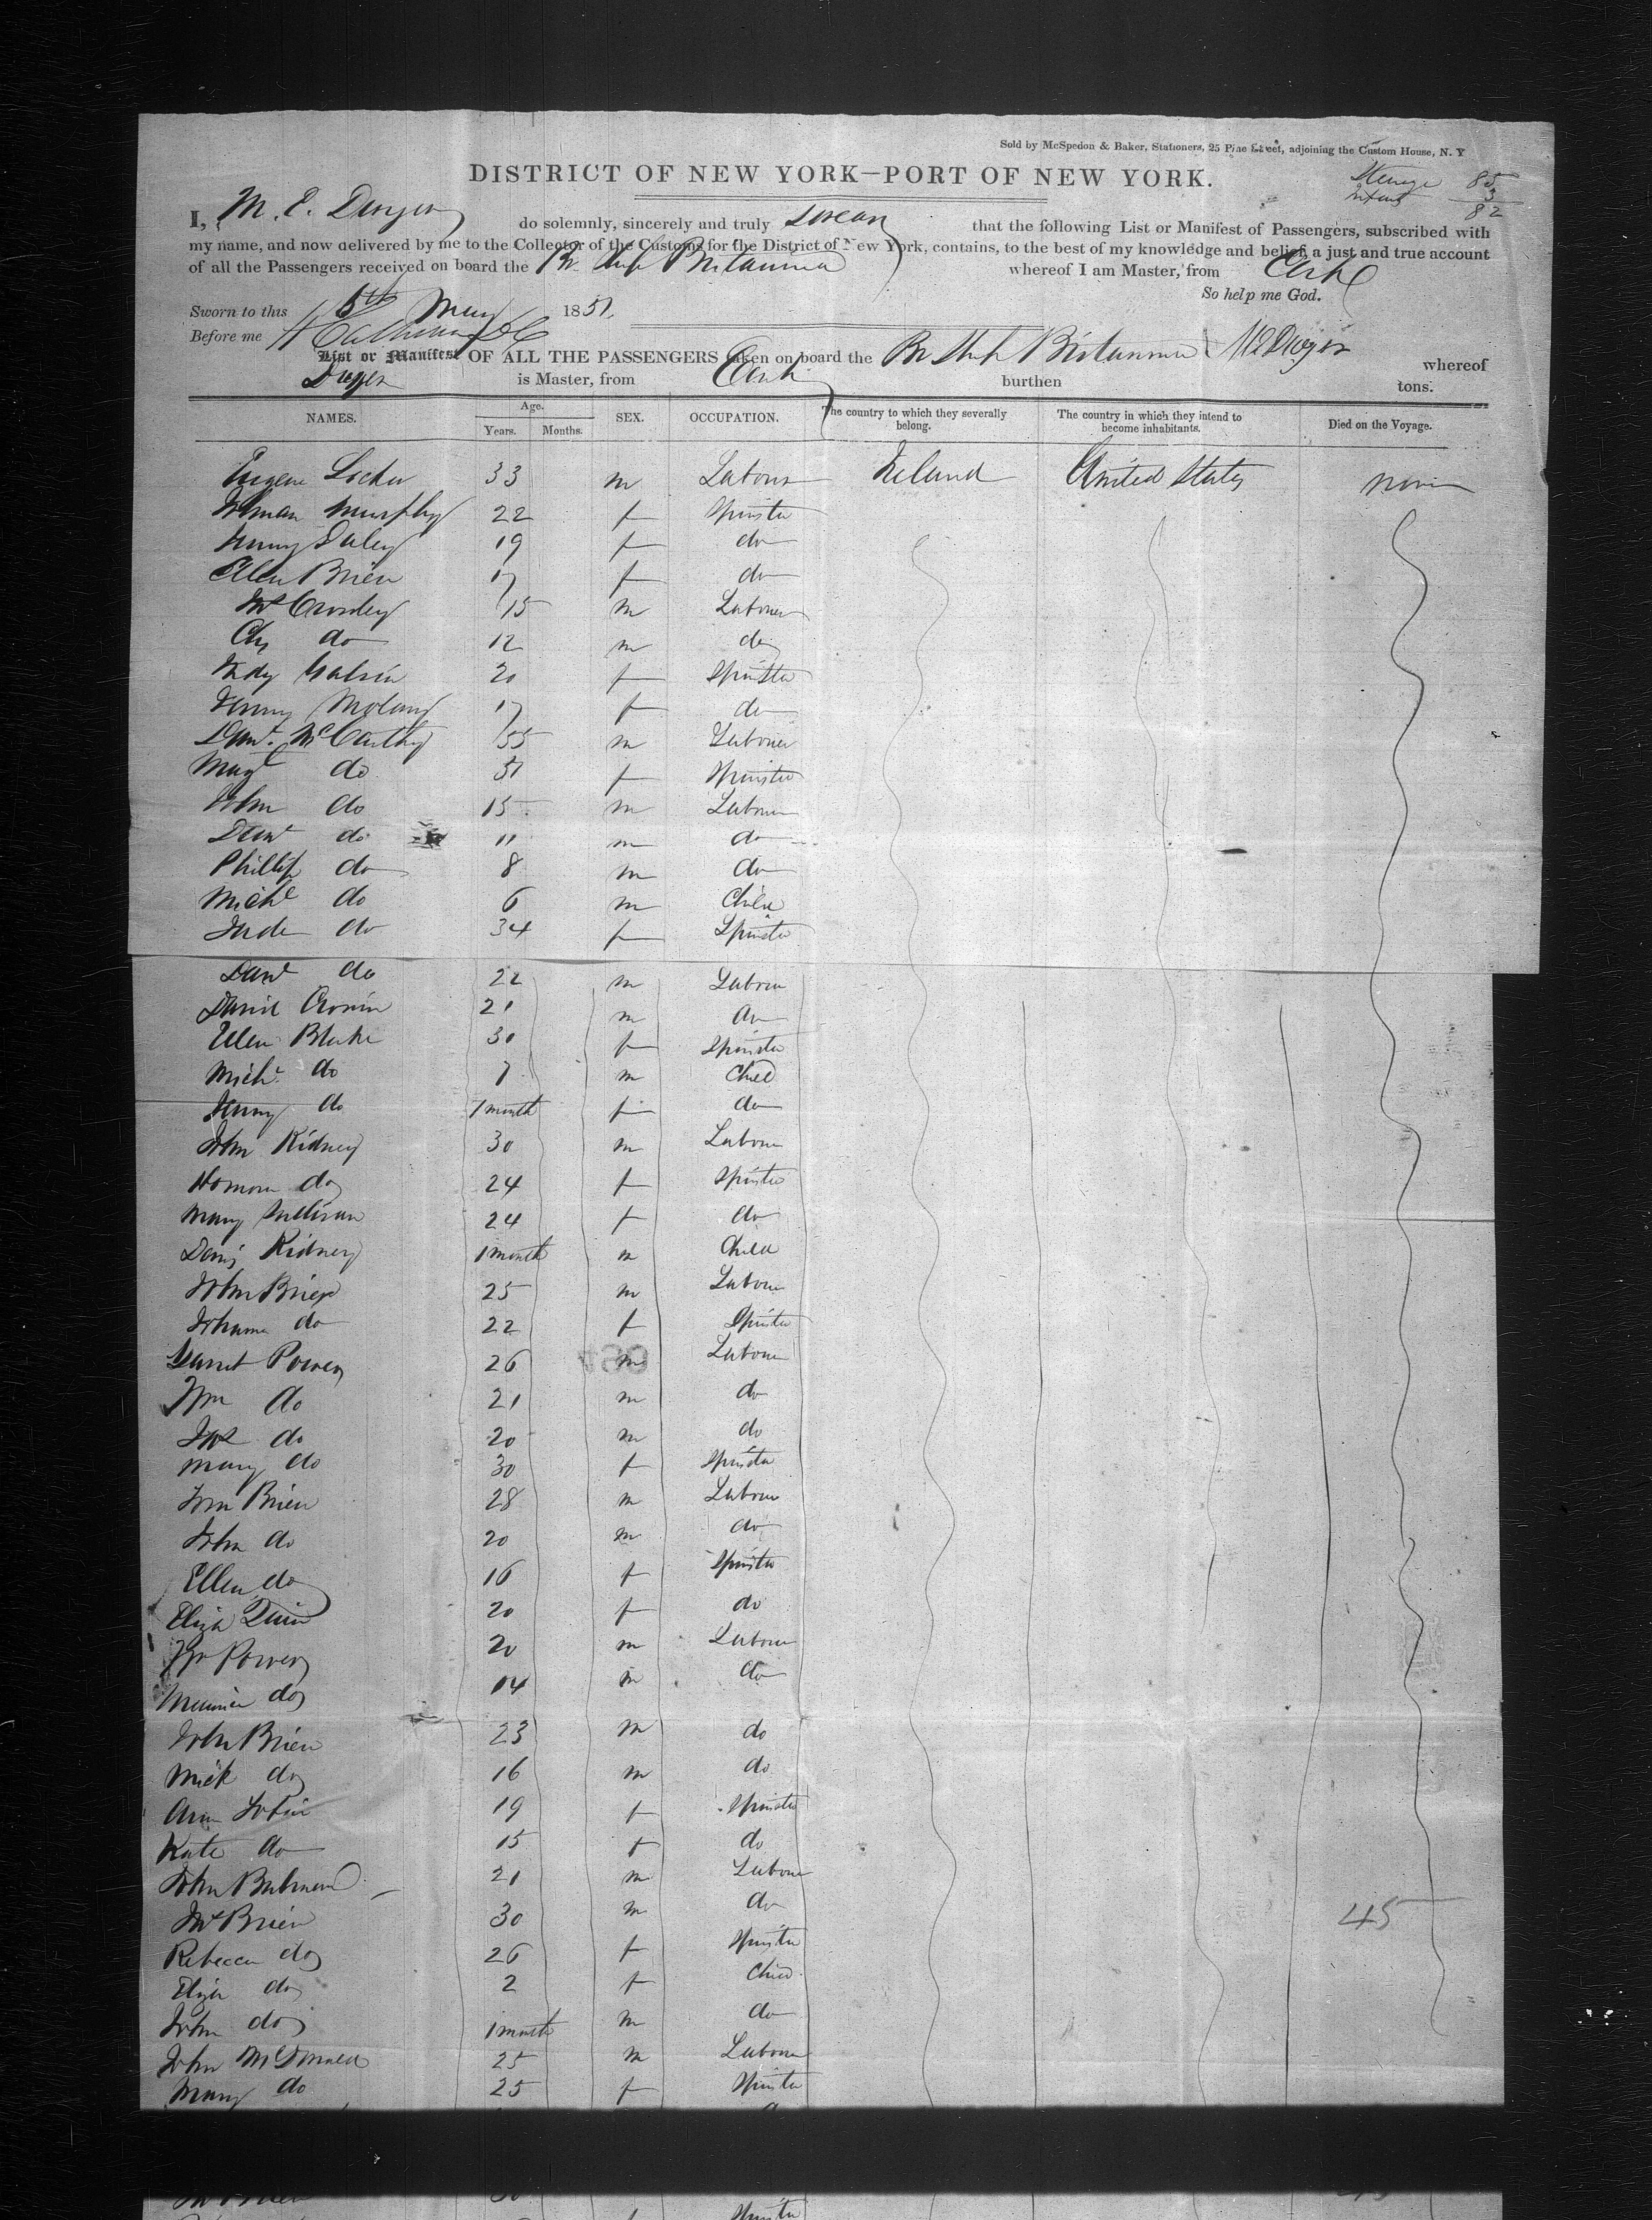 Sold by McSpedon & Baker, Stationers, 25 Pine Street, adjoining the Custom House, N. Y
DISTRICT OF NEW YORK—PORT OF NEW YORK.
85
3
82
I, M. E. do solemnly, sincerely and truly swear that the following List or Manifest of Passengers, subscribed with
my name, and now delivered by me to the Collector of the Customs for the District of New York, contains, to the best of my knowledge and belief, a just and true account
of all the Passengers received on board the Br. Ship Britannia whereof I am Master, from Cork
So help me God.
Sworn to this 5th May 1851.
Before me
List or Manifest OF ALL THE PASSENGERS taken on board the Br Ship Britannia whereof
is Master, from Cork burthen tons.
NAMES. Age. Years. Months. SEX. OCCUPATION. The country to which they severally belong. The country in which they intend to become inhabitants. Died on the Voyage.
Eugene 33 m Labour Ireland United States
Murphy 22 f Spinster
Daley 19 f do
Ellen Brien 17 f do
Crowley 15 m Labourer
do 12 m do
20 f Spinster
17 f do
Danl. McCarthy 55 m Labourer
Magt do 51 f Spinster
John do 15 m Labour
Danl do 11 m do
Phillip do 8 m do
Michl do 6 m Child
do 34 f Spinster
Danl do 22 m Labour
David Cronin 21 m do
Ellen Blake 30 f Spinster
Michl. do 7 m Child
do 1 month f do
John Kidney 30 m Labour
do 24 f Spinster
Mary Sullivan 24 f do
Denis Kidney 1 month m Child
John Brien 25 m Labour
Johanna do 22 f Spinster
Garret Power 26 m Labour
Wm do 21 m do
do 20 m do
Mary do 30 f Spinster
Brien 28 m Labour
John do 20 m do
Ellen do 16 f Spinster
Eliza Quin 20 f do
Power 20 m Labour
Maurice do 14 m do
John Brien 23 m do
Mick do 16 m do
Ann Tobin 19 f Spinster
Kate do 15 f do
John 21 m Labour
Brien 30 m do 45
Rebecca do 26 f Spinster
Eliza do 2 f Child
John do 1 month m do
John McDonald 25 m Labour
Mary do 25 f Spinster